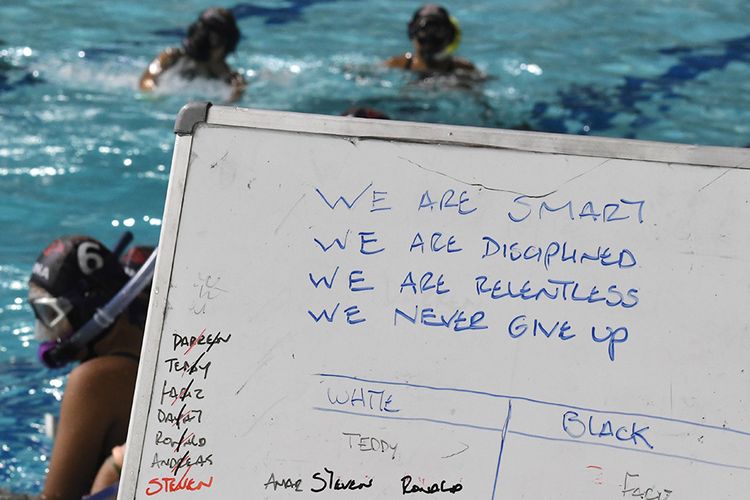 WE ARE SMART
WE ARE DISCIPLINED
WE ARE RELENTLESS
WE NEVER GIVE UP
6
DARREN
TEDDY
FADIZ
DAYAT
RONALD
ANDREAS
STEVEN
WHITE
BLACK
TEDDY
ANDR STEVEN RONALD